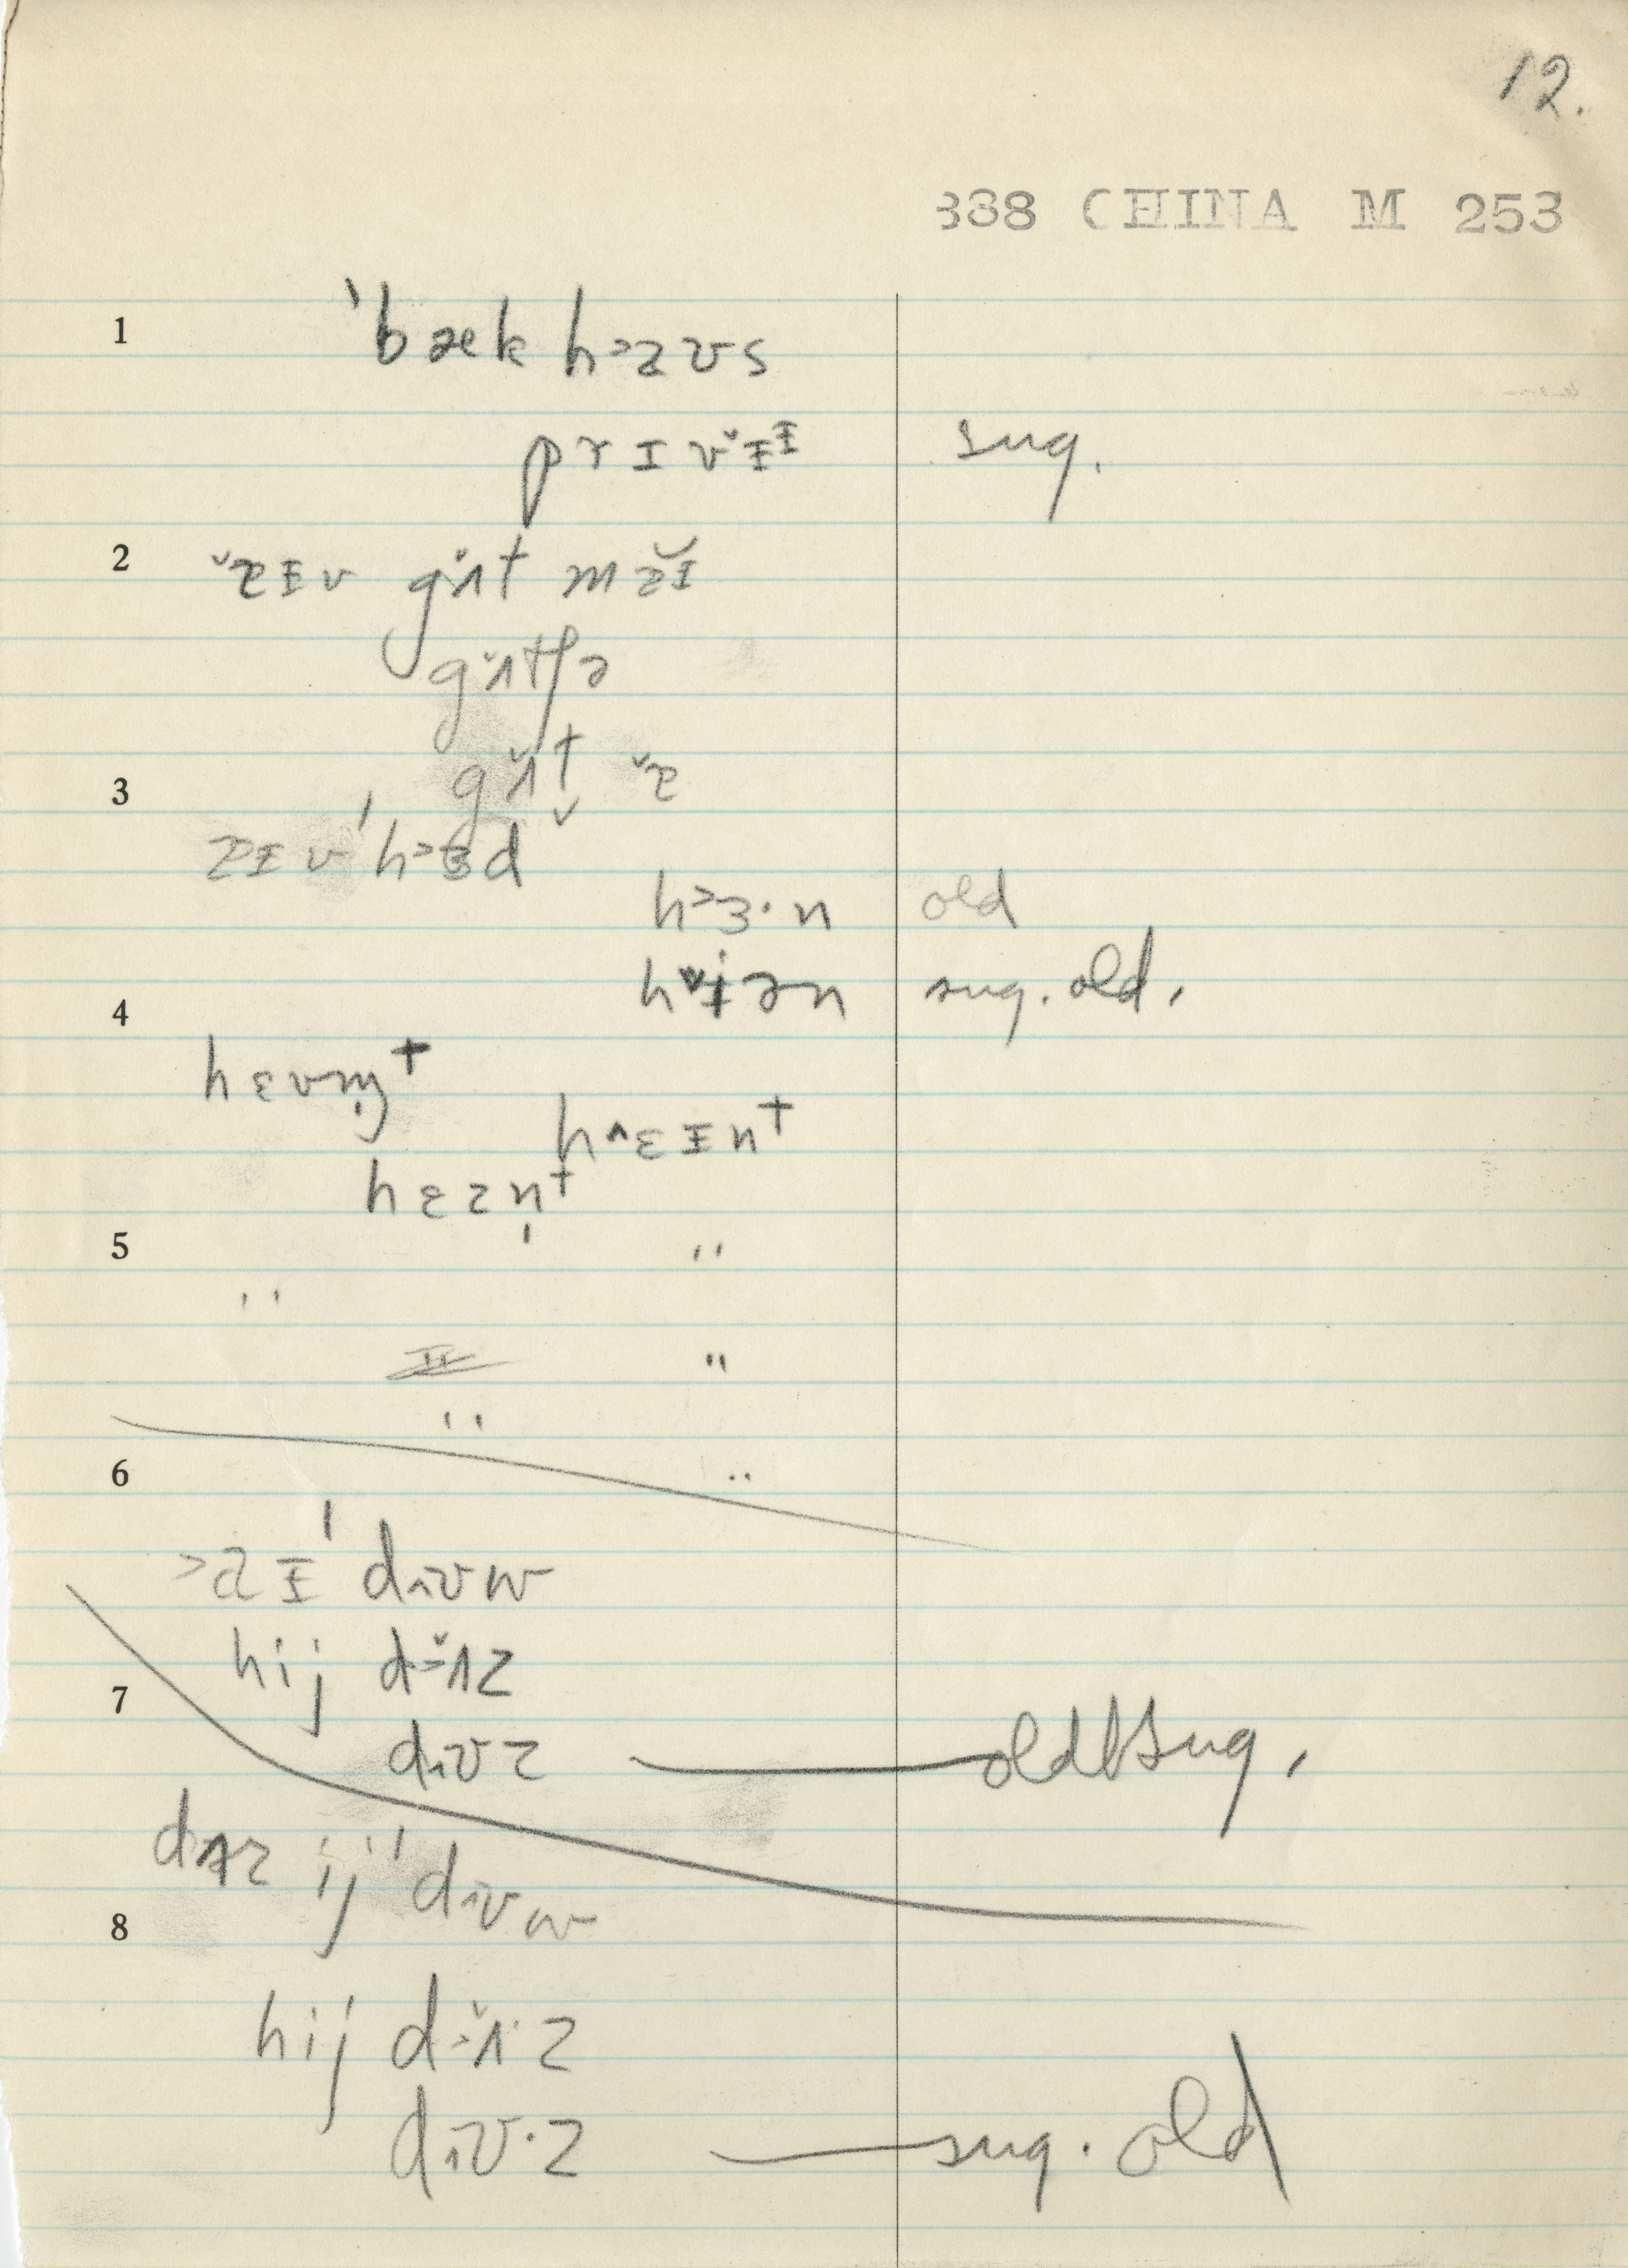 12.
338 CHINA M 253
1 ˈbæk h˃aʊs
prɪvˇɪᶦ sug.
2 ˇɐɪv gˇʌt mă̆ɪ
gˇʌtʃə
3 gˇʌt ˇɐ
ɐɪv ˈh˃ɜd
h˃ɜ·n old
hˇiən sug. old.
4 hɛvm̩t
h^ɛɪnt
hɛzn̩t
5 "
"
" "
"
6 "
˃aɪ ˈdʌuw
hij d˃ˇʌz
7 duz — old sug.
dʌz ij ˈduw
8
hij d˃ˇʌ·z
du·z — sug. old